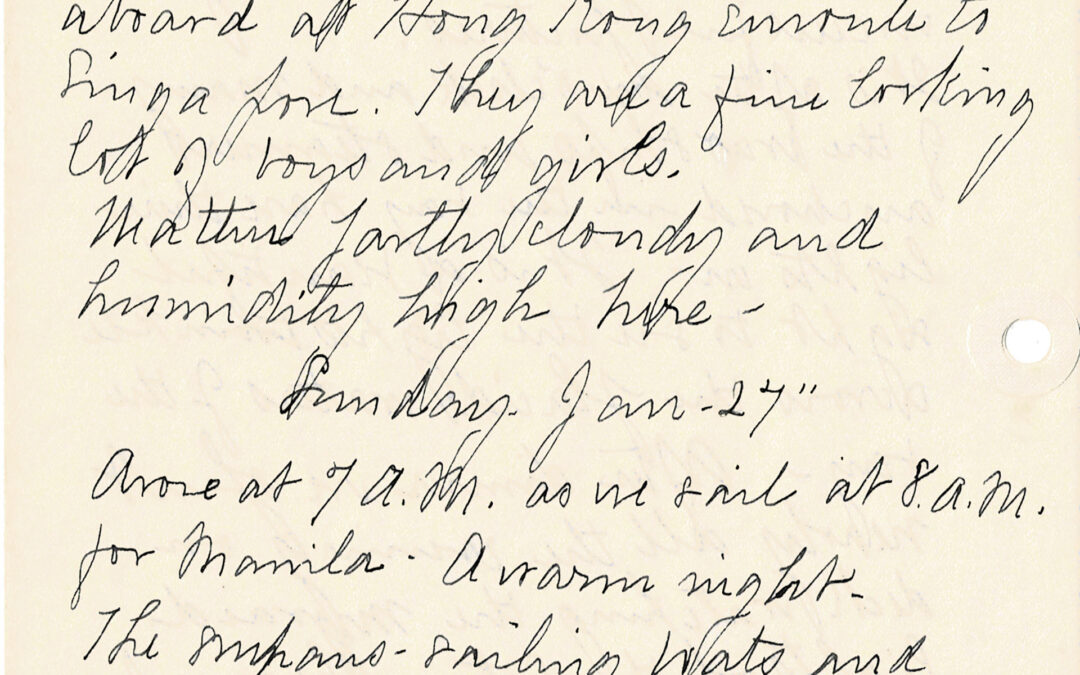 aboard at Hong Kong enroute to
Singapore. They are a fine looking
lot of boys and girls.
Weather partly cloudy and
humidity high here -
Sunday - Jan - 27"
Arose at 7 A.M. as we sail at 8. a.m.
for Manila - A warm night -
The sampans - sailing boats and